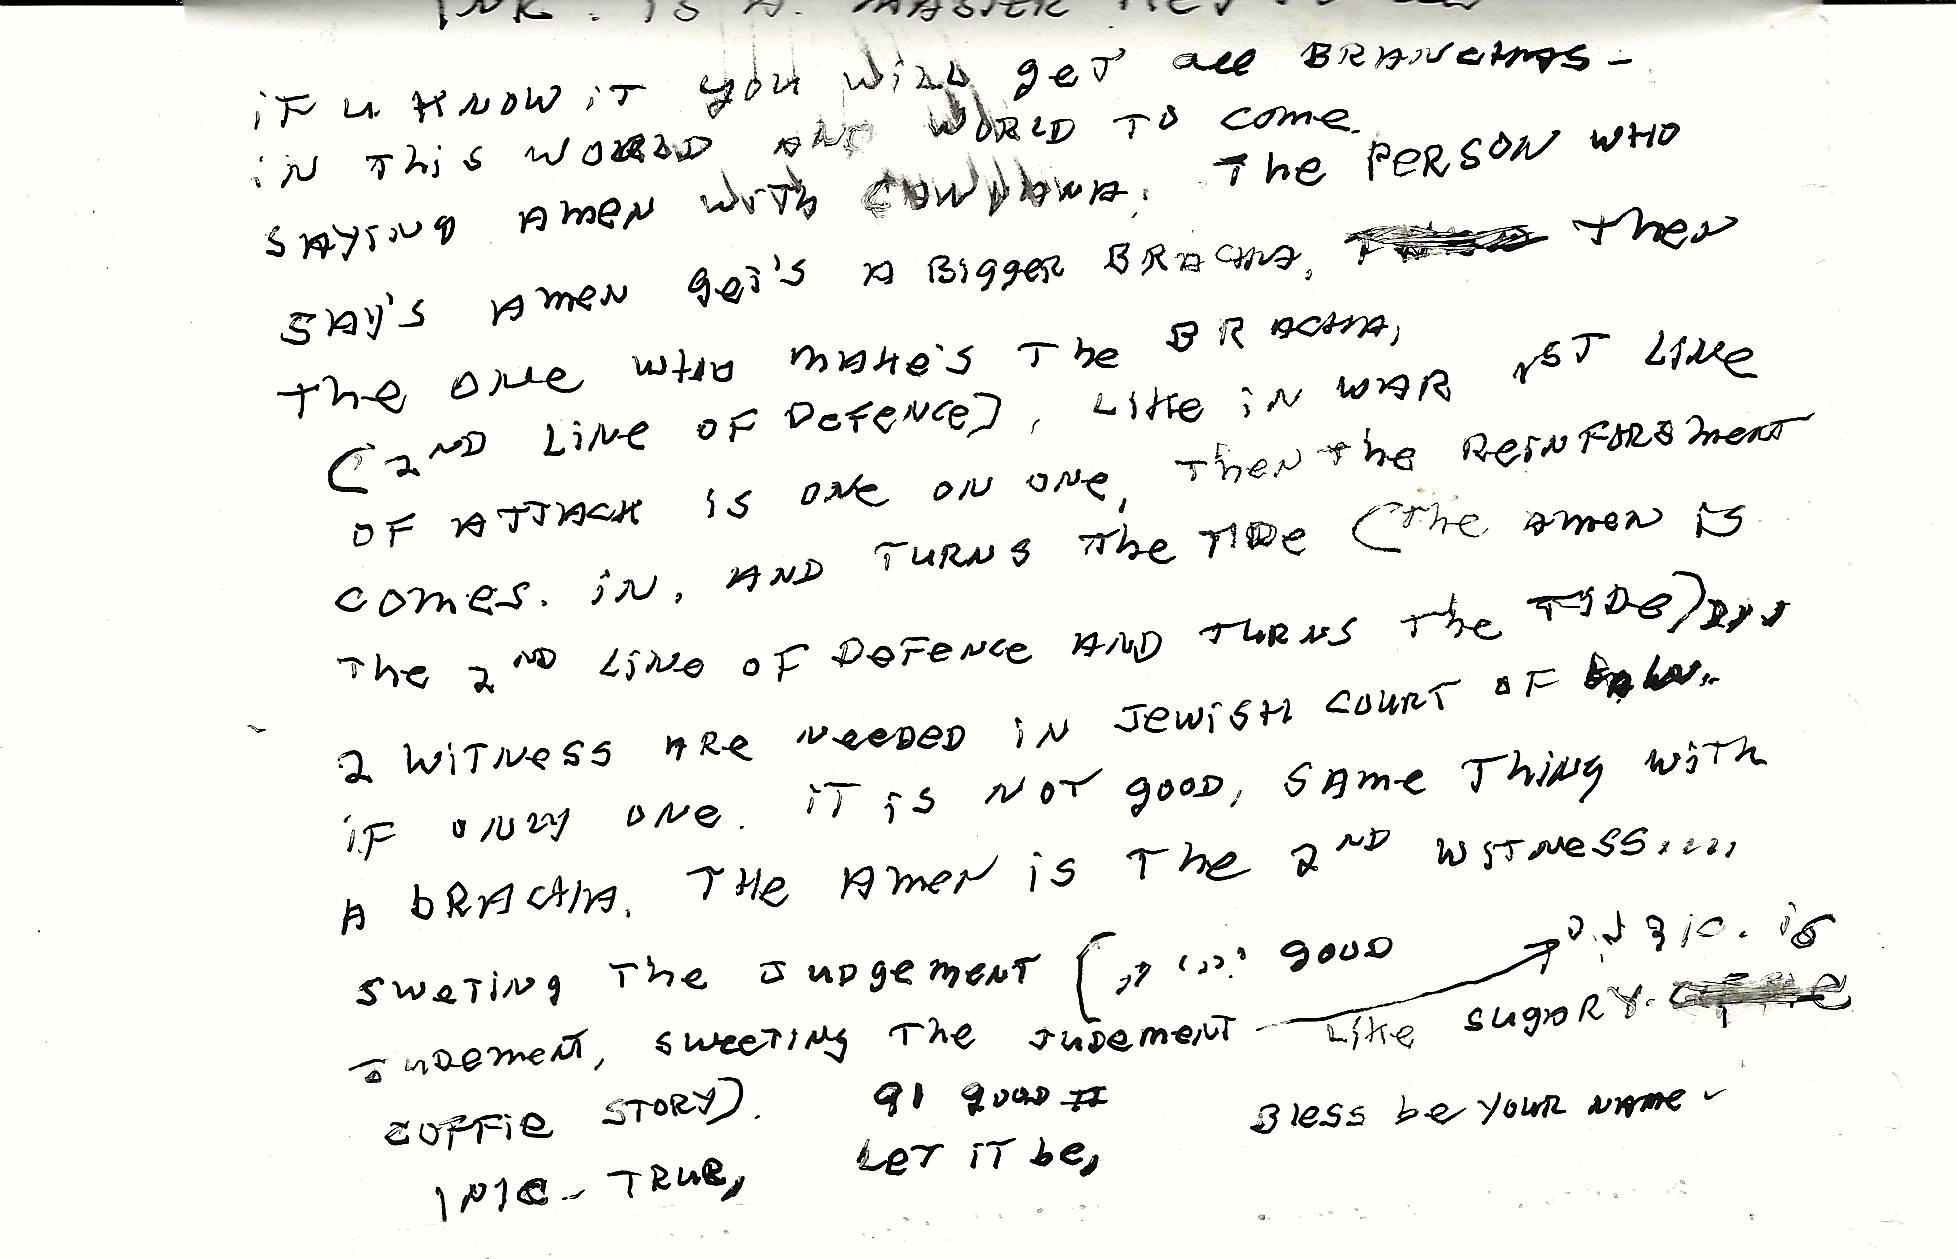 IS A MASTER KEY
iF u KNOW iT YOU WiLL geT all BRANCHAS -
iN This WORLD AND WORLD TO come.
SAYING AMEN WiTH CAWVANA. The PERSON WHO
SAY'S AMEN geT'S A BiggeR BRACHA, Then
The ONe WHO MAKe'S The BRACHA,
(2ND LiNe OF DeFeNce), LiKe iN WAR 1ST LiNe
OF ATTACK iS ONe ON ONe, TheN The ReiNFORSment
comes. iN, AND TURNS The TIDe (The AmeN iS
The 2ND LiNe OF DeFeNce AND TURNS The TIDe)
2 WiTNeSS ARe NeeDeD iN JewiSH COURT OF LAW..
iF ONLY ONe. iT iS NOT gOOD, SAme ThiNg WiTh
A bRACHA. THe AmeN iS The 2ND WiTNeSS....
SweTiNg The JUDgemeNT ( gOOD is
JUDemeNT, SweeTiNg The JUDemeNT LiKe SUgARY.
COFFie STORY). 91 gOOD # BleSS be YOUR NAme -
TRUe, LeT iT be,